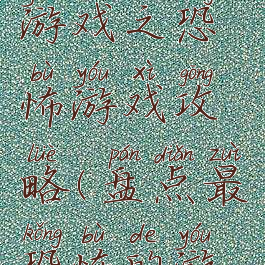 游戏之恐
bù yóu xì gōng
怖游戏攻
lüè pán diǎn zuì
略(盘点最
kǒng bù de yóu
恐怖的游